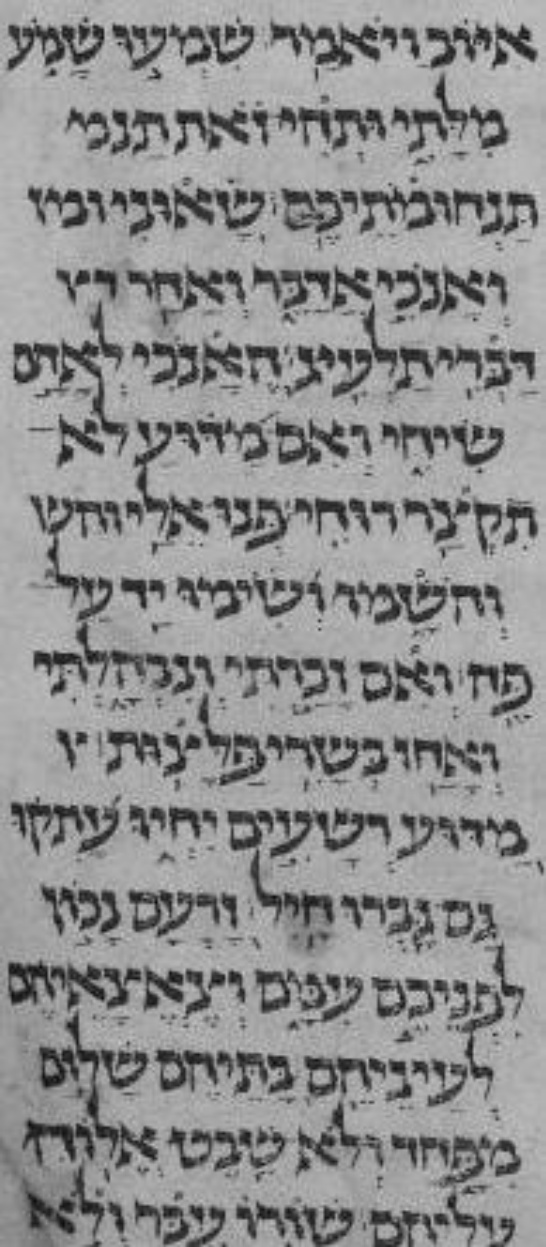 איוב ויאמר שמעו שמע
מלתי ותהי זאת
תנחומתיכם שאוני
ואנכי אדבר ואחר
דברי תלעיג האנכי לאדם
שיחי ואם מדוע לא
תקצר רוחי פנו אלי והש
והשמו ושימו יד על
פה ואם זכרתי ונבהלתי
ואחז בשרי פלצות
מדוע רשעים יחיו עתקו
גם גברו חיל זרעם נכון
לפניהם עמם וצאצאיהם
לעיניהם בתיהם שלום
מפחד ולא שבט אלוה
עליהם שורו עבר ולא